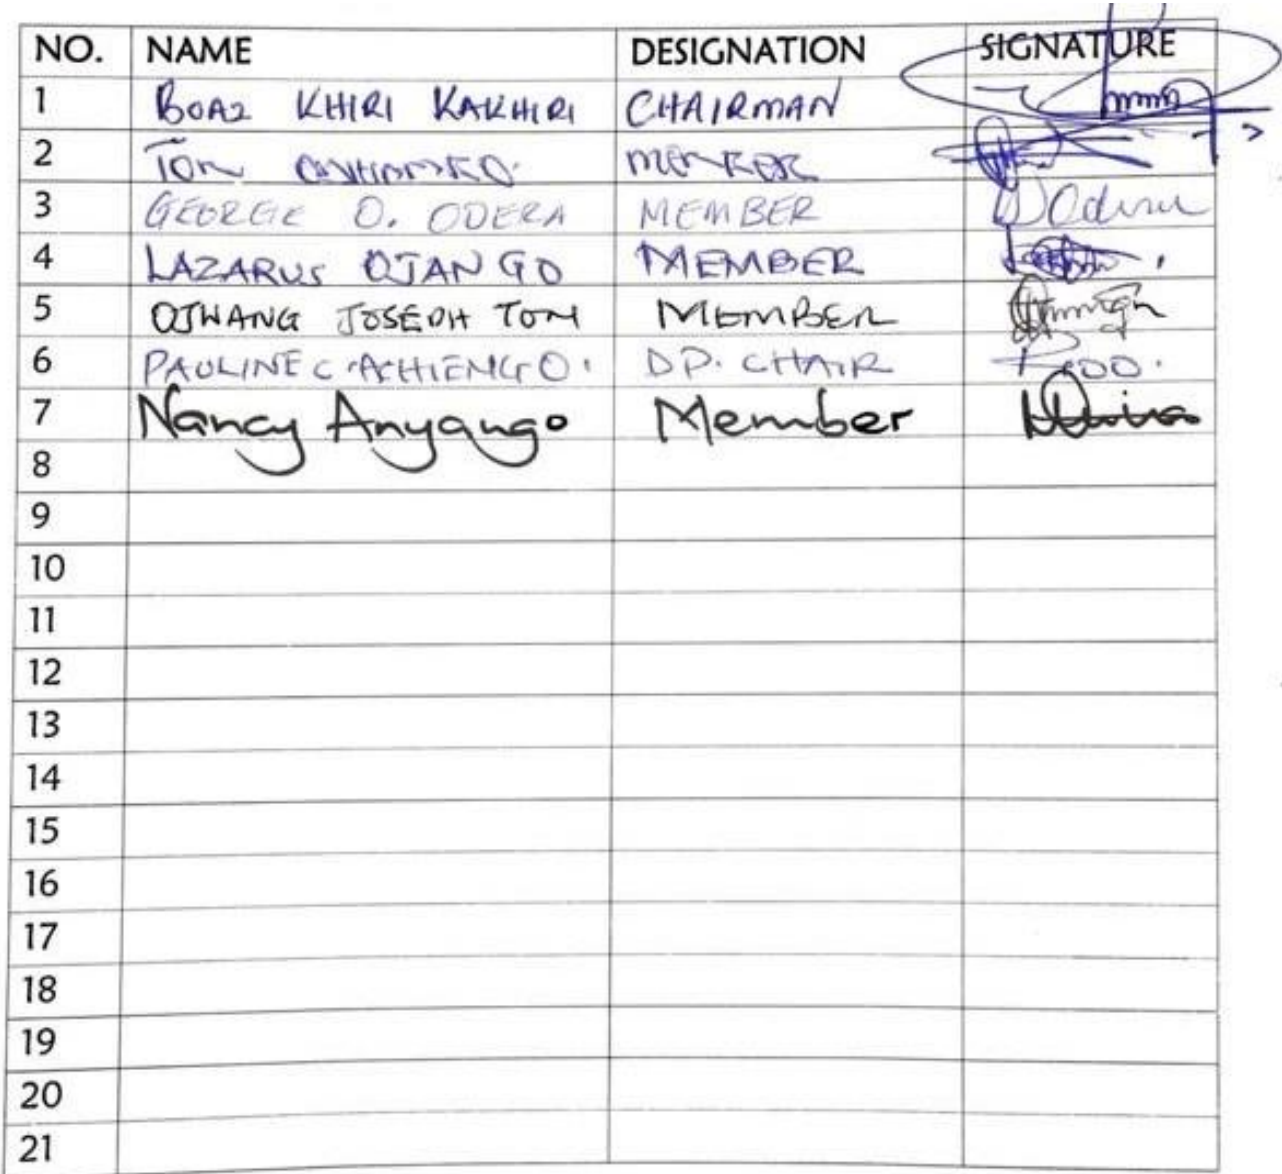 NO. NAME DESIGNATION SIGNATURE
1 BOAZ KHIRI KAKHIRI CHAIRMAN
2 TOM MEMBER
3 GEORGE O. ODERA MEMBER
4 LAZARUS OJANGO MEMBER
5 OJWANG JOSEPH TOM MEMBER
6 PAULINE C. ACHIENG O. DP. CHAIR
7 Nancy Anyango Member
8
9
10
11
12
13
14
15
16
17
18
19
20
21